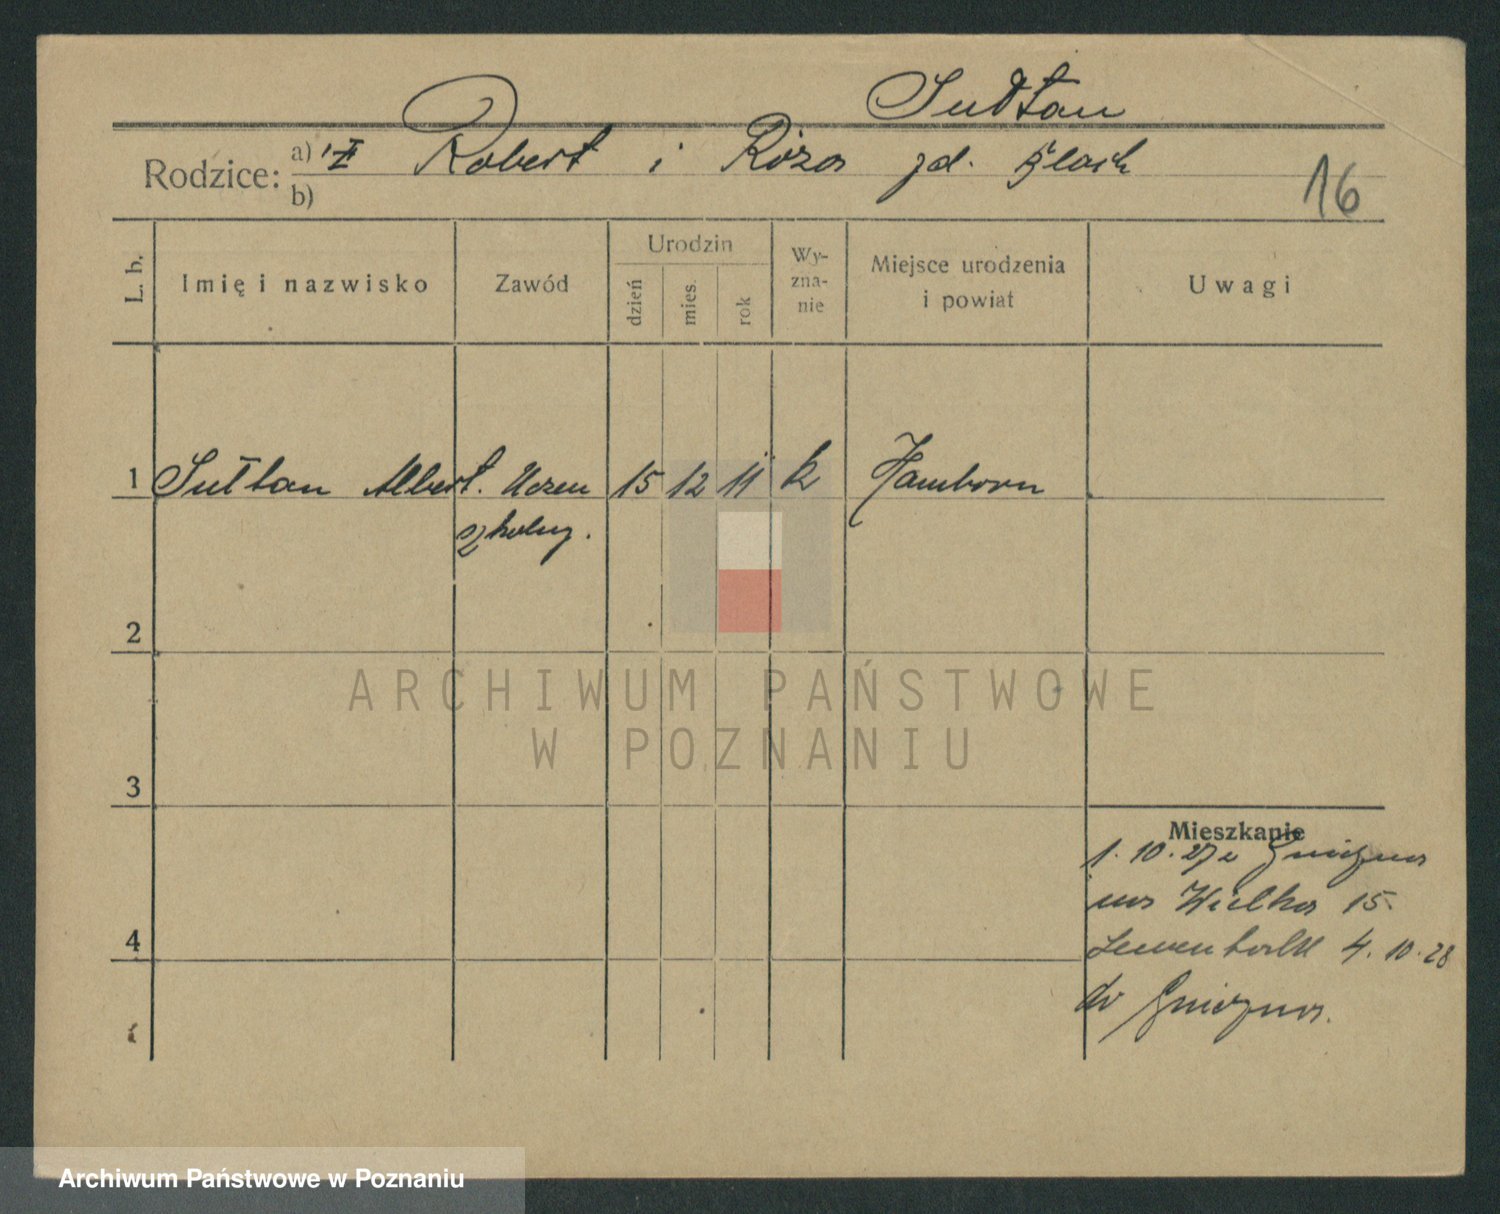 Sułtan
Rodzice: a) Robert i Róża zd.
b)
16
L. b. Imię i nazwisko Zawód Urodzin dzień mies. rok Wy-zna-nie Miejsce urodzenia i powiat Uwagi
1 Sułtan Albert. Uczeń 15 12 11 k Hamborn
szkolny.
2
ARCHIWUM PAŃSTWOWE
W POZNANIU
3
Mieszkanie
1. 10. 27 z Gniezna
na Wielka 15.
4 4. 10. 28
do Gniezna.
Archiwum Państwowe w Poznaniu